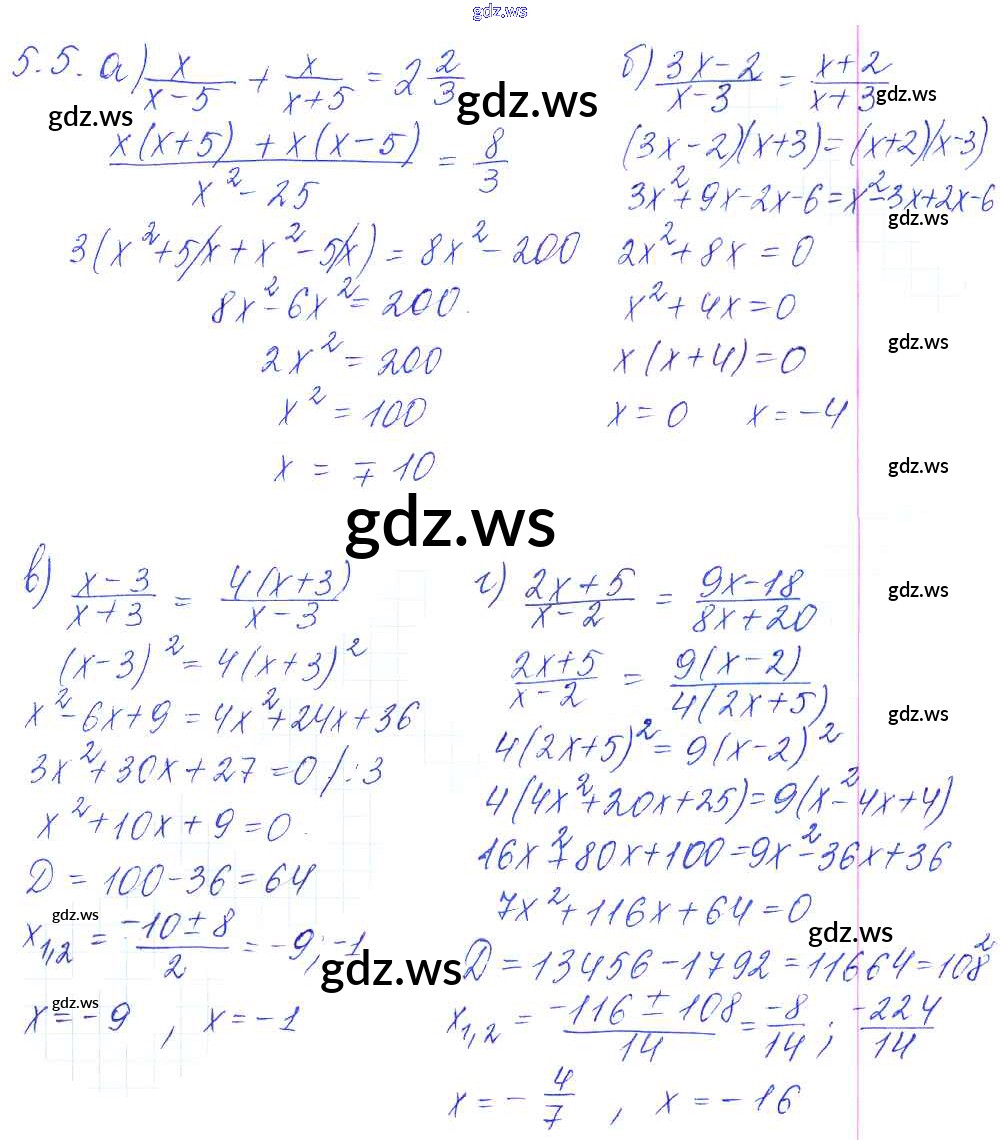 gdz.ws
5.5. а) x/(x-5) + x/(x+5) = 2 2/3
gdz.ws
gdz.ws
(x(x+5) + x(x-5))/(x²-25) = 8/3
3(x²+5x+x²-5x) = 8x²-200
8x²-6x²=200.
2x²=200
x²=100
x = ∓10
б) (3x-2)/(x-3) = (x+2)/(x+3)
gdz.ws
(3x-2)(x+3)=(x+2)(x-3)
3x²+9x-2x-6=x²-3x+2x-6
gdz.ws
2x²+8x=0
x²+4x=0
gdz.ws
x(x+4)=0
x=0 x=-4
gdz.ws
gdz.ws
в) (x-3)/(x+3) = 4(x+3)/(x-3)
(x-3)²=4(x+3)²
x²-6x+9=4x²+24x+36
3x²+30x+27=0 /:3
x²+10x+9=0.
D=100-36=64
gdz.ws
x1,2 = (-10±8)/2 = -9; -1
gdz.ws
gdz.ws
x=-9, x=-1
г) (2x+5)/(x-2) = (9x-18)/(8x+20)
gdz.ws
(2x+5)/(x-2) = 9(x-2)/(4(2x+5))
gdz.ws
4(2x+5)²=9(x-2)²
4(4x²+20x+25)=9(x²-4x+4)
16x²+80x+100=9x²-36x+36
7x²+116x+64=0
gdz.ws
D=13456-1792=11664=108²
x1,2 = (-116±108)/14 = -8/14; -224/14
x=-4/7, x=-16